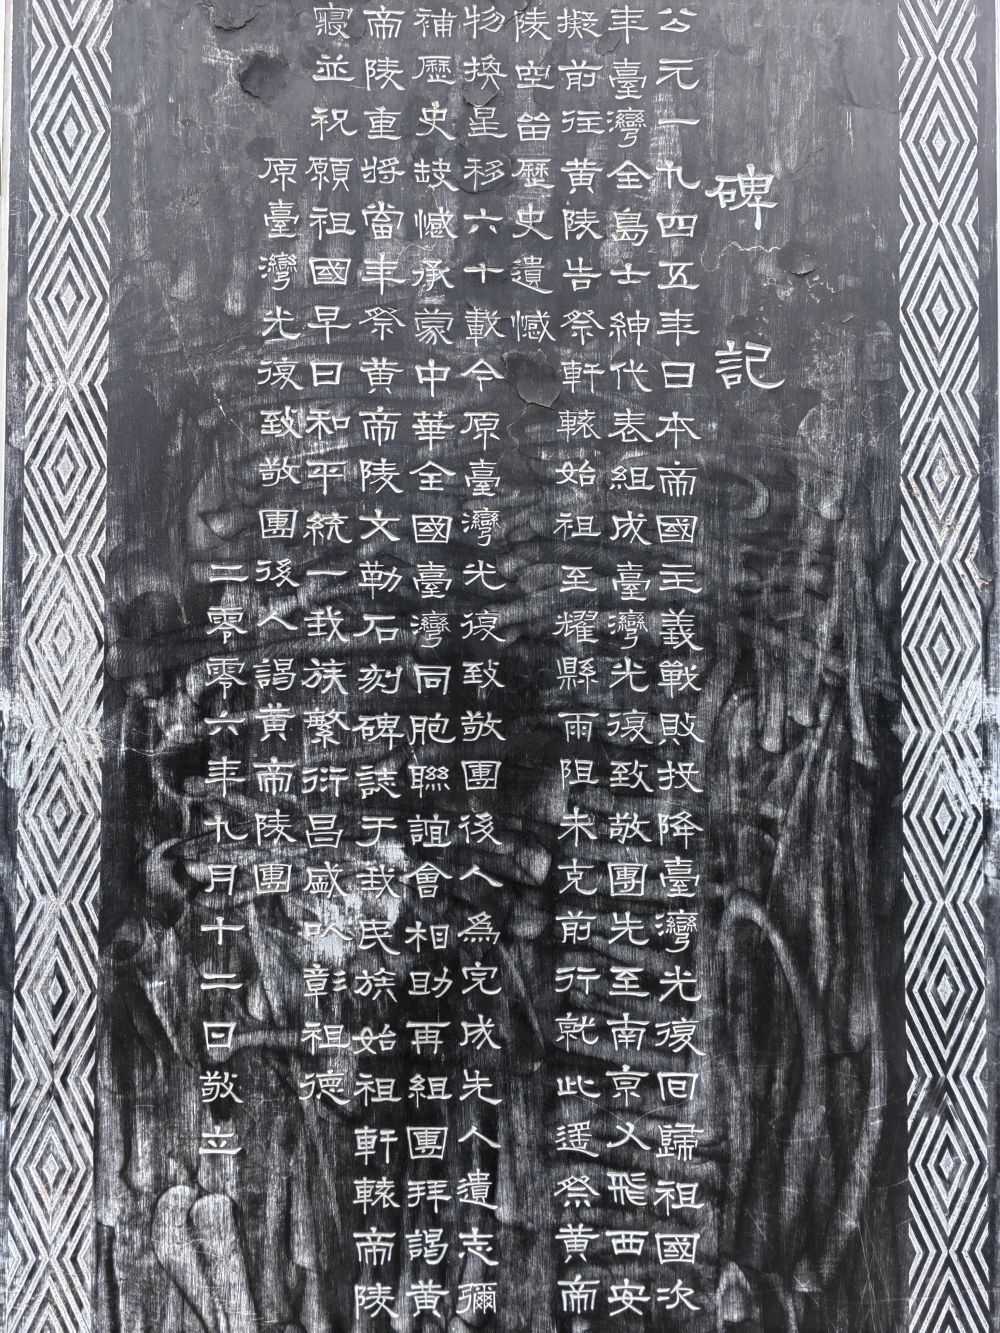 碑記
公元一九四五年日本帝國主義戰敗投降臺灣光復回歸祖國次
年臺灣全島士紳代表組成臺灣光復致敬團先至南京乂飛西安
擬前往黃陵告祭軒轅始祖至耀縣雨阻未克前行就此遙祭黃帝
陵空留歷史遺憾
物換星移六十載今原臺灣光復致敬團後人為完成先人遺志彌
補歷史缺憾承蒙中華全國臺灣同胞聯誼會相助再組團拜謁黃
帝陵重將當年祭黃帝陵文勒石刻碑誌于我民族始祖軒轅帝陵
寢並祝願祖國早日和平統一我族繁衍昌盛以彰祖德
原臺灣光復致敬團後人謁黃帝陵團
二零零六年九月十二日敬立